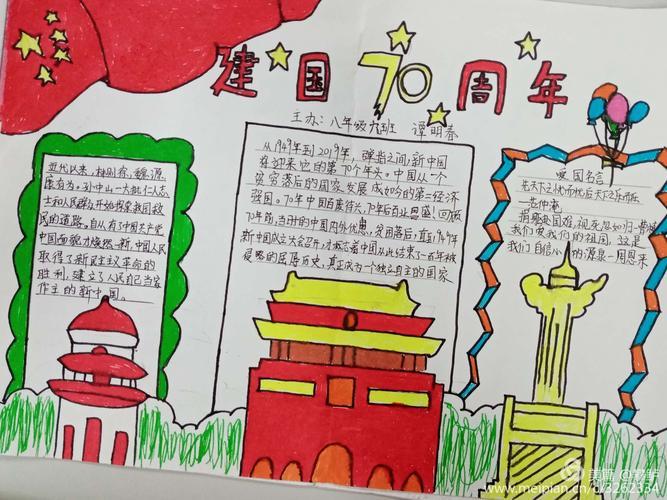 建国70周年
主办:八年级六班 谭明春
近代以来,林则徐、魏源、
康有为、孙中山一大批仁人志
士和人民群众开始探索救国救
民的道路。自从有了中国共产党
中国面貌才焕然一新,中国人民
取得了新民主主义革命的
胜利,建立了人民自己当家
作主的新中国。
从1949年到2019年,弹指之间,新中国
在迎来它的第70个年头。中国从一个
贫穷落后的国家,发展成如今的第二经济
强国。70年中国百废待兴,70年后百业昌盛!回顾
70年前,当时的中国内外忧患,贫困落后,直至1949年
新中国成立大会召开,才标志着中国从此结束了一百年被
侵略的屈辱历史,真正成为一个独立自主的国家
爱国名言
先天下之忧而忧,后天下之乐而乐
—范仲淹
捐躯赴国难,视死忽如归—曹植
我们爱我们的祖国,这是
我们自信心的源泉—周恩来
美篇
www.meipian.cn/c/3262334